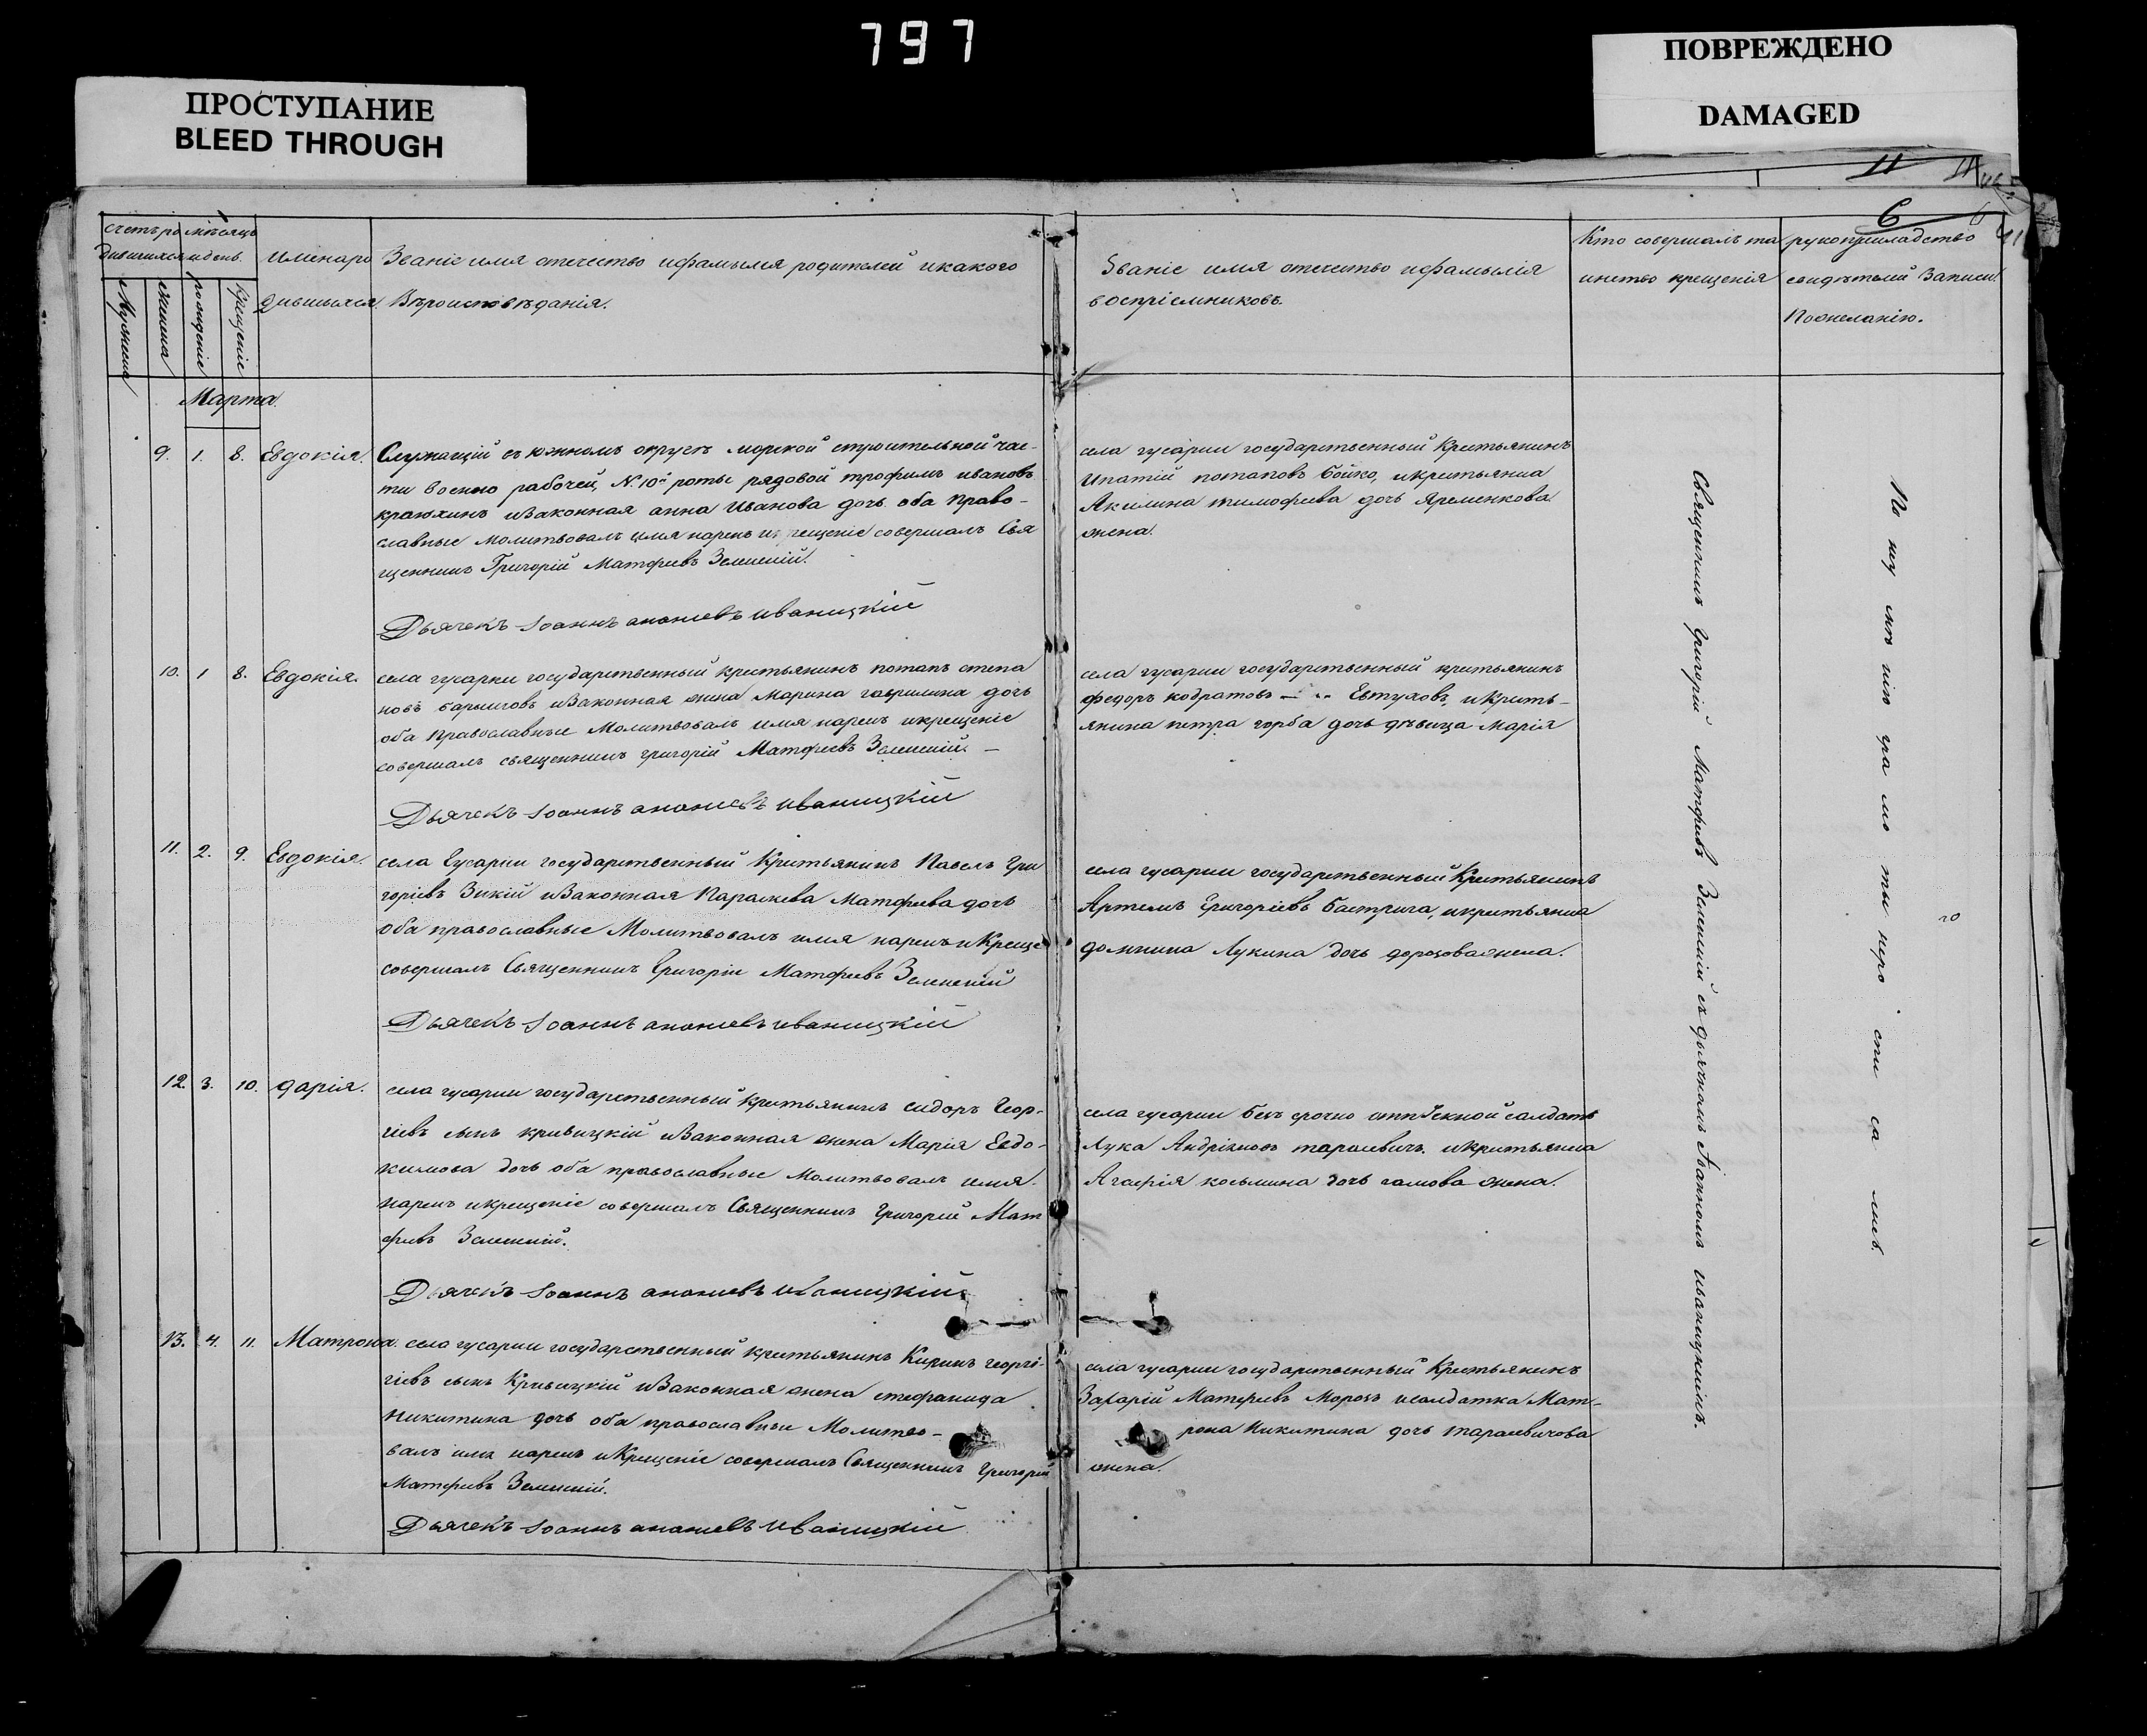 797
ПРОСТУПАНИЕ
BLEED THROUGH
ПОВРЕЖДЕНО
DAMAGED
11
6
Счетъ ро
дившихся
мѣсяцъ
и день.
имена ро
дившихся.
Мужеска
Женска
рожденіе
крещеніе
Званіе имя отечество и фамылія родителей и какого
Вѣроисповѣданія.
Званіе имя отечество и фамылія
воспріемниковъ.
Кто совершалъ та
инство крещенія
рукоприкладство
свидѣтелей Записи
По желанію.
Марта
9. 1. 8. Евдокія.
Служащій въ южномъ округѣ морской строительной час-
ти военно рабочей, N. 10й роты рядовой трофимъ ивановъ
краюхинъ и Законная анна Иванова дочь оба право-
славные молитвовалъ имя нарекъ и крещеніе совершалъ Свя
щенникъ Григорій Матфіевъ Зеленскій.
Дьячекъ Іоаннъ ананіевъ иваницкій
села гусарки государственный Крестьянинъ
Ипатій потаповъ бойко, и крестьянка
Акилина тимофіева дочь Яременкова
жена.
10. 1 8. Евдокія.
села гусарки государственный крестьянинъ потапъ степа
новъ и Законная жена Марина гаврилина дочь
оба православные Молитвовалъ имя нарекъ и крещеніе
совершалъ священникъ григорій Матфіевъ Зеленскій. —
Дьячекъ Іоаннъ ананіевъ иваницкій
села гусарки государственный крестьянинъ
федоръ кодратовъ — Евтуховъ, и Кресть-
янина петра горба дочь дѣвица Марія
11. 2. 9. Евдокія.
села Гусарки государственный Крестьянинъ Павелъ Гри
горіевъ Зикій и Законная Параскева Матфіева дочь
оба православные Молитвовалъ имя нарекъ и Креще
совершалъ Священникъ Григорій Матфіевъ Зеленскій
Дьячекъ Іоаннъ ананіевъ иваницкій
села гусарки государственный Крестьянинъ
Артемъ Григоріевъ бастрига, и крестьянка
домнина Лукина дочь жена.
12. 3. 10. дарія.
села гусарки государственный крестьянинъ сидоръ Геор-
гіевъ сынъ кривицкій и Законная жена Марія Евдо-
кимова дочь оба православные молитвовалъ имя
нарекъ и крещеніе совершалъ Священникъ Григорій Мат
фіевъ Зеленскій.
Дьячекъ Іоаннъ ананіевъ иваницкій
села гусарки безъ срочно отпускной салдатъ
Лука Андріяновъ тарасевичъ. и крестьянка
Агафія косьмина дочь гамова жена.
13. 4. 11. Матрона.
села гусарки государственный крестьянинъ Кирикъ георгі-
гіевъ сынъ Кривицкій и Законная жена стефанида
никитина дочь оба православные Молитво-
валъ имя нарекъ и Крещеніе совершалъ Священникъ Григорій
Матфіевъ Зеленскій.
Дьячекъ Іоаннъ ананіевъ иваницкій
села гусарки государственный Крестьянинъ
Захарій Матфіевъ Морозъ и салдатка Мат-
рона Никитина дочь тарасевичова
жена.
Священникъ Григорій Матфіевъ Зеленскій съ дьячкомъ Іоанномъ иваницкимъ.
По не умѣнію грамоты не росписались.